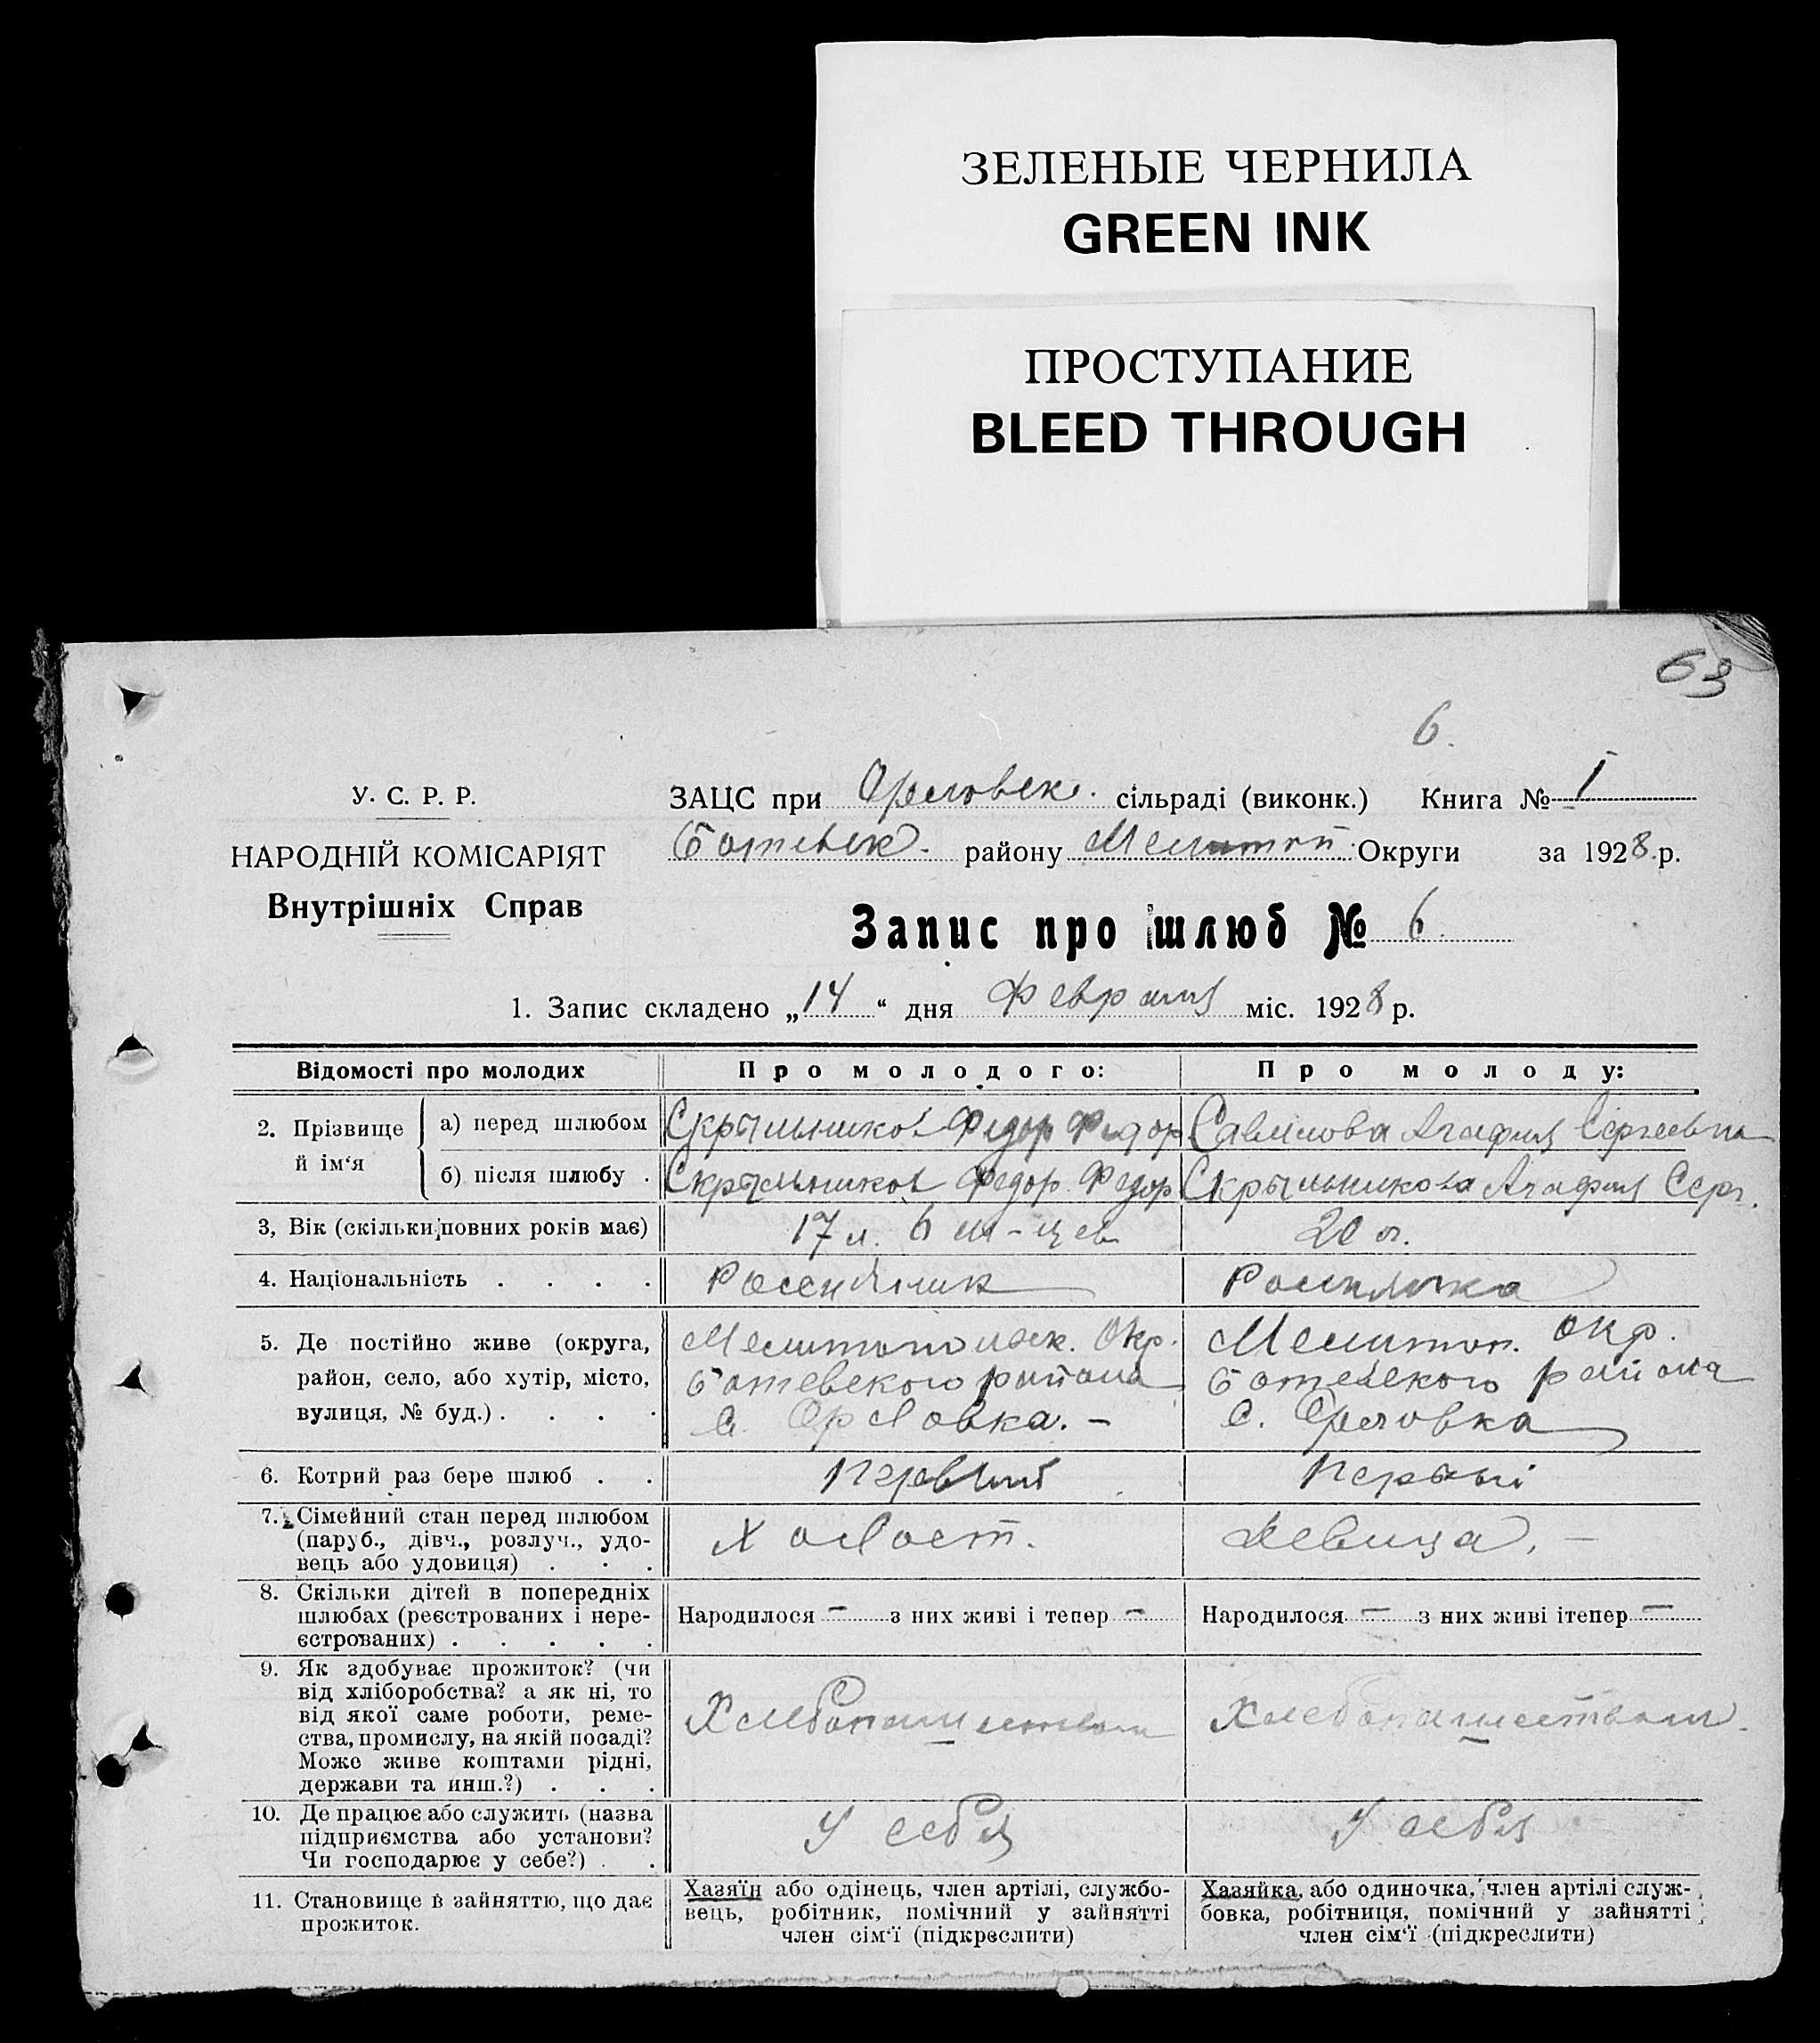 ЗЕЛЕНЫЕ ЧЕРНИЛА
GREEN INK
ПРОСТУПАНИЕ
BLEED THROUGH
63
6.
У. С. Р. Р.
НАРОДНІЙ КОМІСАРІЯТ
Внутрішніх Справ
ЗАЦС при Орловск. сільраді (виконк.) Книга № I
Ботевск. району Мелитоп. Округи за 1928 р.
Запис про шлюб № 6
1. Запис складено „14“ дня Февраля міс. 1928 р.
Відомості про молодих Про молодого: Про молоду:
2. Прізвище й ім‘я
а) перед шлюбом Скрыльников Федор Федор Савилова Агафия Сергеевна
б) після шлюбу . Скрыльников Федор. Федор Скрыльникова Агафия Серг.
3, Вік (скільки повних років має) 17 л. 6 м-цев 20 л.
4. Національність . . . . Россиянин Россиянка
5. Де постійно живе (округа, район, село, або хутір, місто, вулиця, № буд.) . . . .
Мелитопольск. Окр. Мелитоп. окр.
Ботевского района Ботевского района
с. Орловка. – с. Орловка
6. Котрий раз бере шлюб . . Первый Первый
7. Сімейний стан перед шлюбом (паруб., дівч., розлуч., удовець або удовиця) . . . Холост. Девица. –
8. Скільки дітей в попередніх шлюбах (реєстрованих і нереєстрованих) . . . . . Народилося – з них живі і тепер – Народилося – з них живі ітепер –
9. Як здобуває прожиток? (чи від хліборобства? а як ні, то від якої саме роботи, ремества, промислу, на якій посаді? Може живе коштами рідні, держави та инш.?) . . . Хлебопашеством Хлебопашеством.
10. Де працює або служить (назва підприємства або установи? Чи господарює у себе?) . . У себя У себя
11. Становище в зайняттю, що дає прожиток.
Хазяїн або одінець, член артілі, службовець, робітник, помічний у зайнятті член сім‘ї (підкреслити)
Хазяйка, або одиночка, член артілі службовка, робітниця, помічний у зайнятті член сім‘ї (підкреслити)